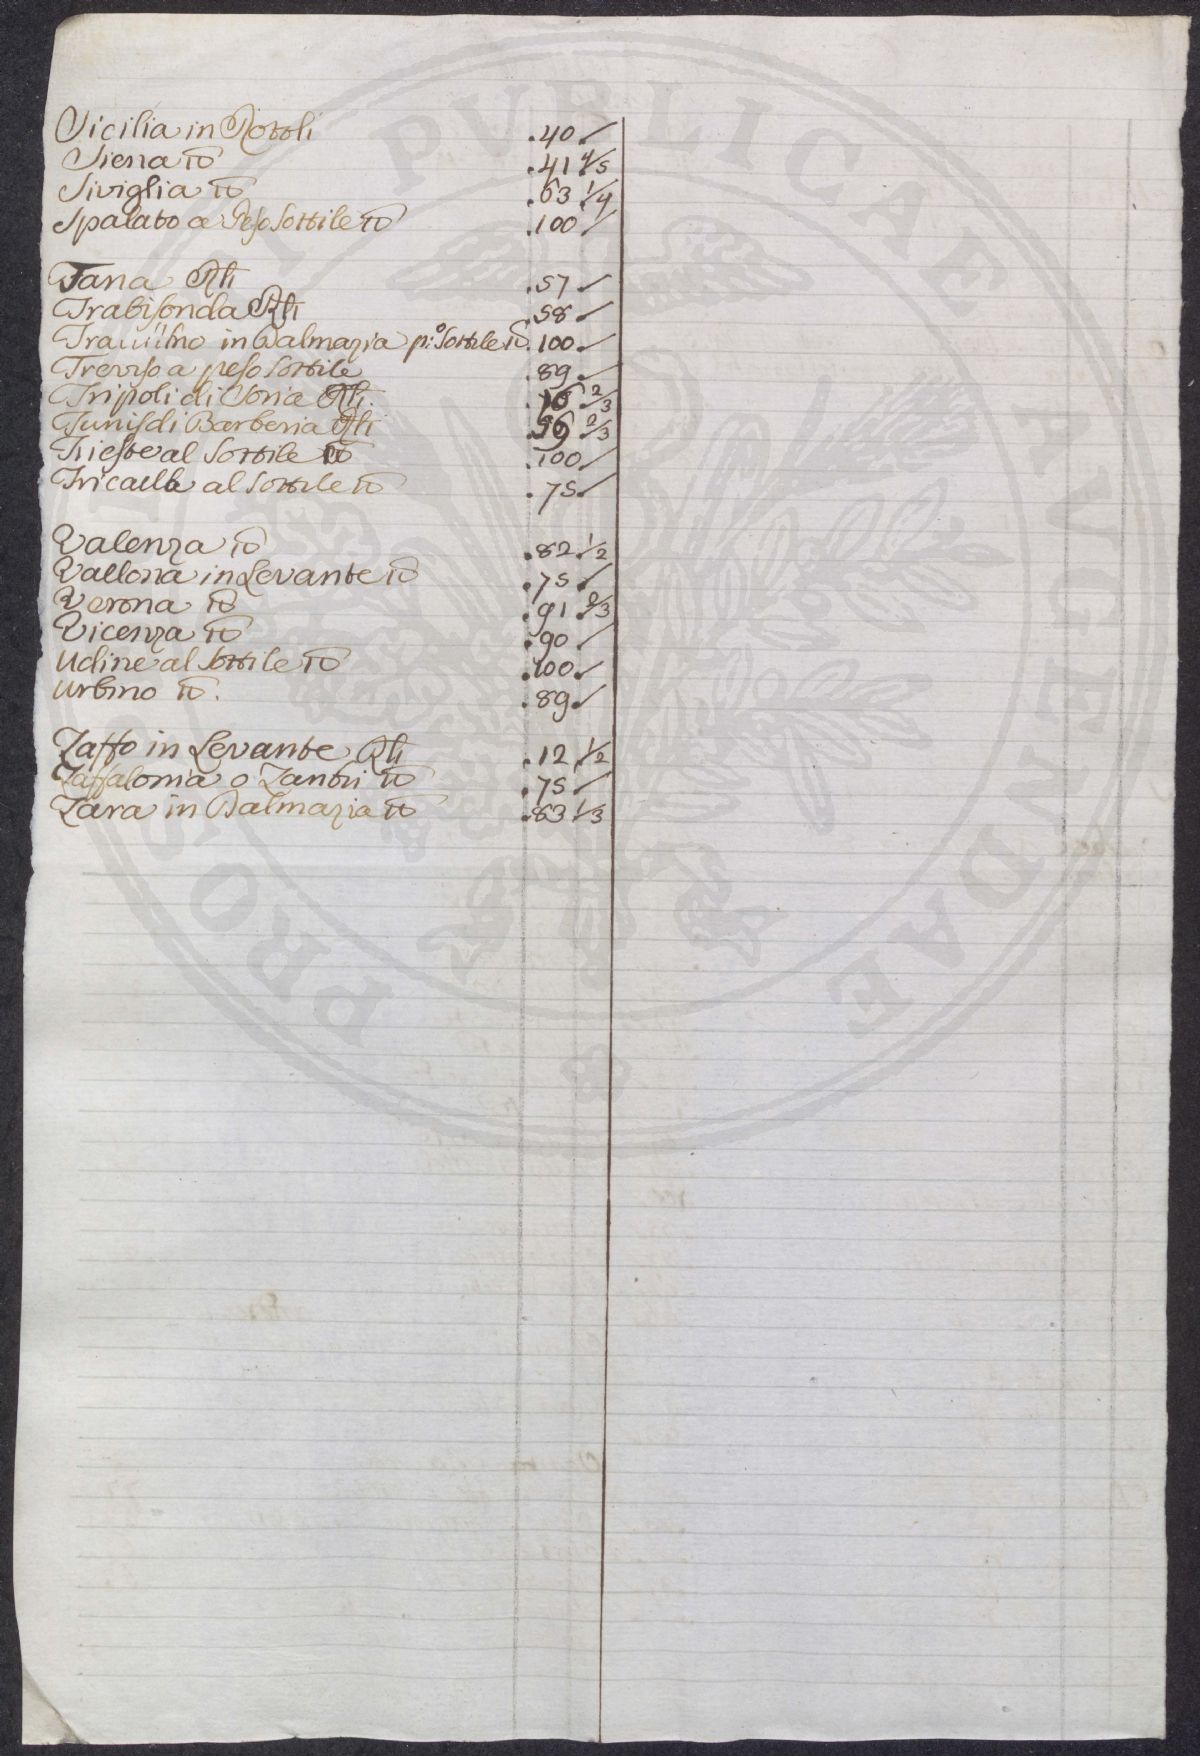 Sicilia in Rottoli .40
Siena lb .41 4/5
Siviglia lb .63 1/4
Spalato a Peso Sottile lb .100
Tana Rtli .57
Trabisonda Rtli .58
in Dalmazia p:o sottile lb .100
Treviso a peso sottile .89
Tripoli di Soria Rtli. 2/3
Tunis di Barberia Rtli 2/3
Trieste al sottile lb .100
Tricalla al sottile lb .75
Valenza lb .82 1/2
Vallona in Levante lb .75
Verona lb .91 2/3
Vicenza lb .90
Udine al sottile lb .100
Urbino lb. .89
Zaffo in Levante Rtli .12 1/2
Zaffalonia o Zante lb .75
Zara in Dalmazia lb .83 1/3
PRO REI PUBLICAE AUGENDAE